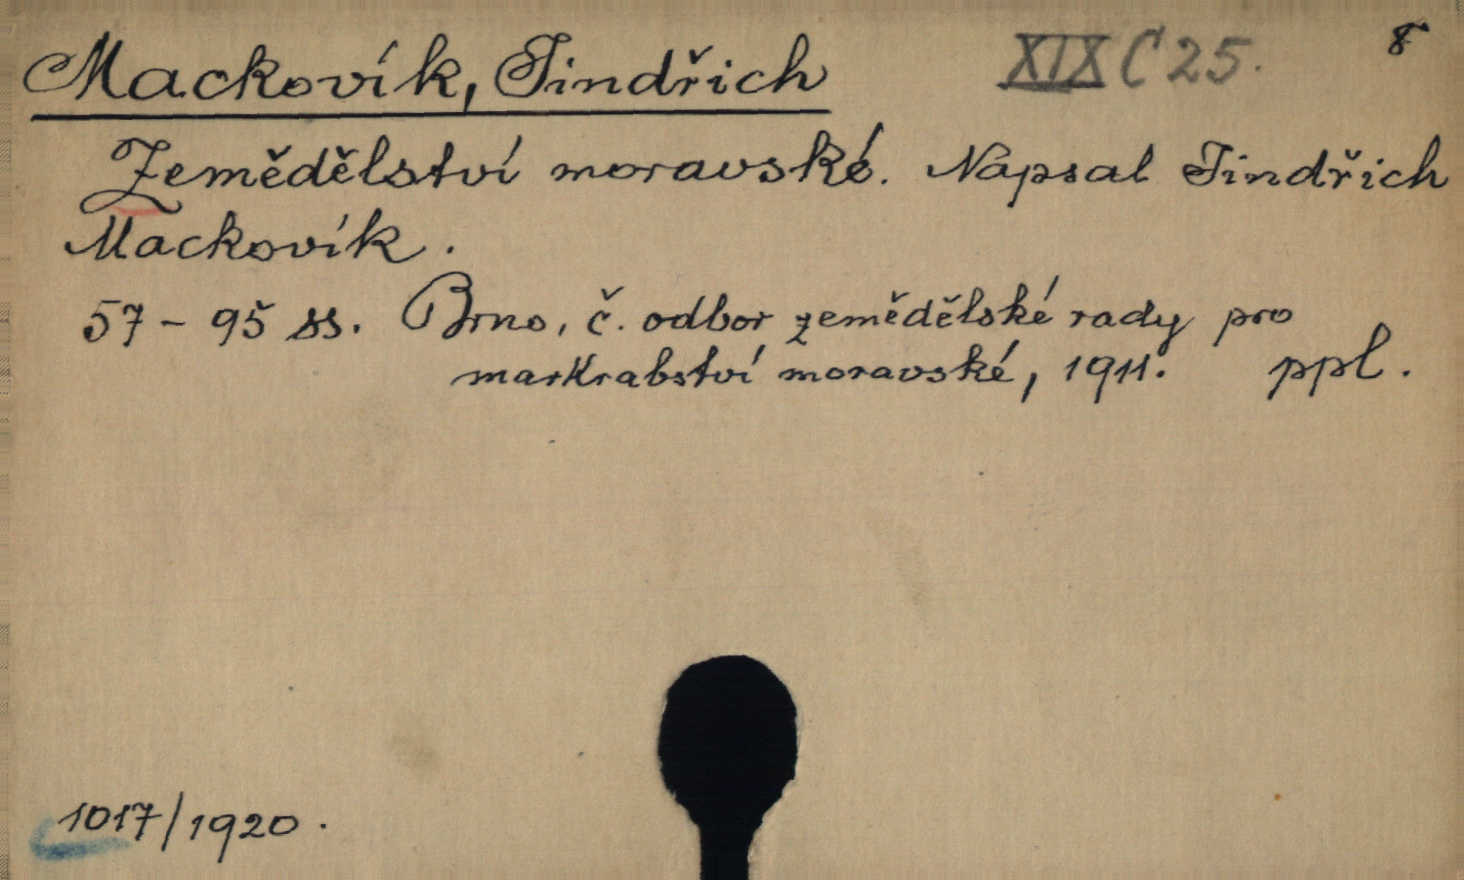 Mackovík, Jindřich XIX C 25. 8
Zemědělství moravské. Napsal Jindřich
Mackovík.
57 - 95 ss. Brno, č. odbor zemědělské rady pro
markrabství moravské, 1911. ppl.
1017/1920.